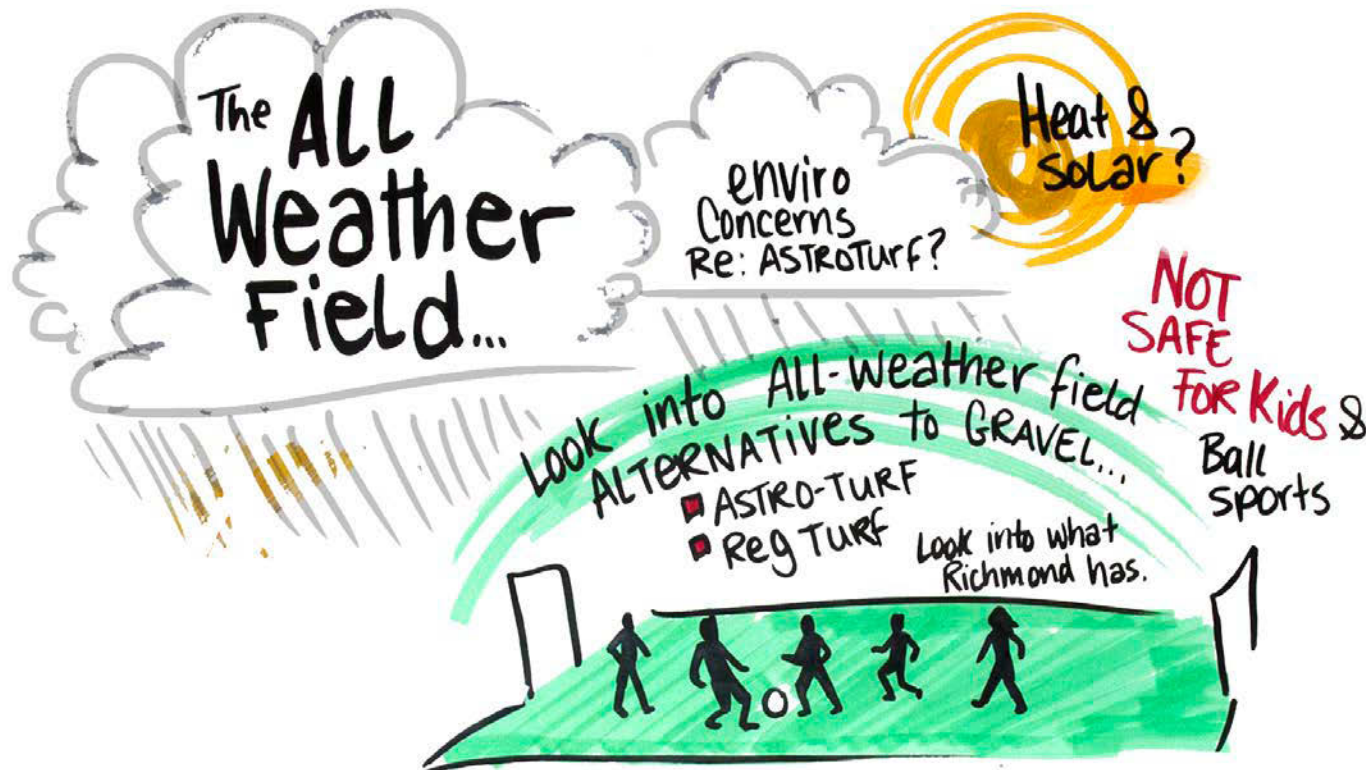 The ALL
Weather
Field...
enviro
Concerns
Re: ASTROTurf?
Heat &
solar?
NOT
SAFE
FOR Kids &
Ball
sports
Look into All-weather field
ALTERNATIVES to GRAVEL...
ASTRO-TURF
Reg TURF
Look into what
Richmond has.